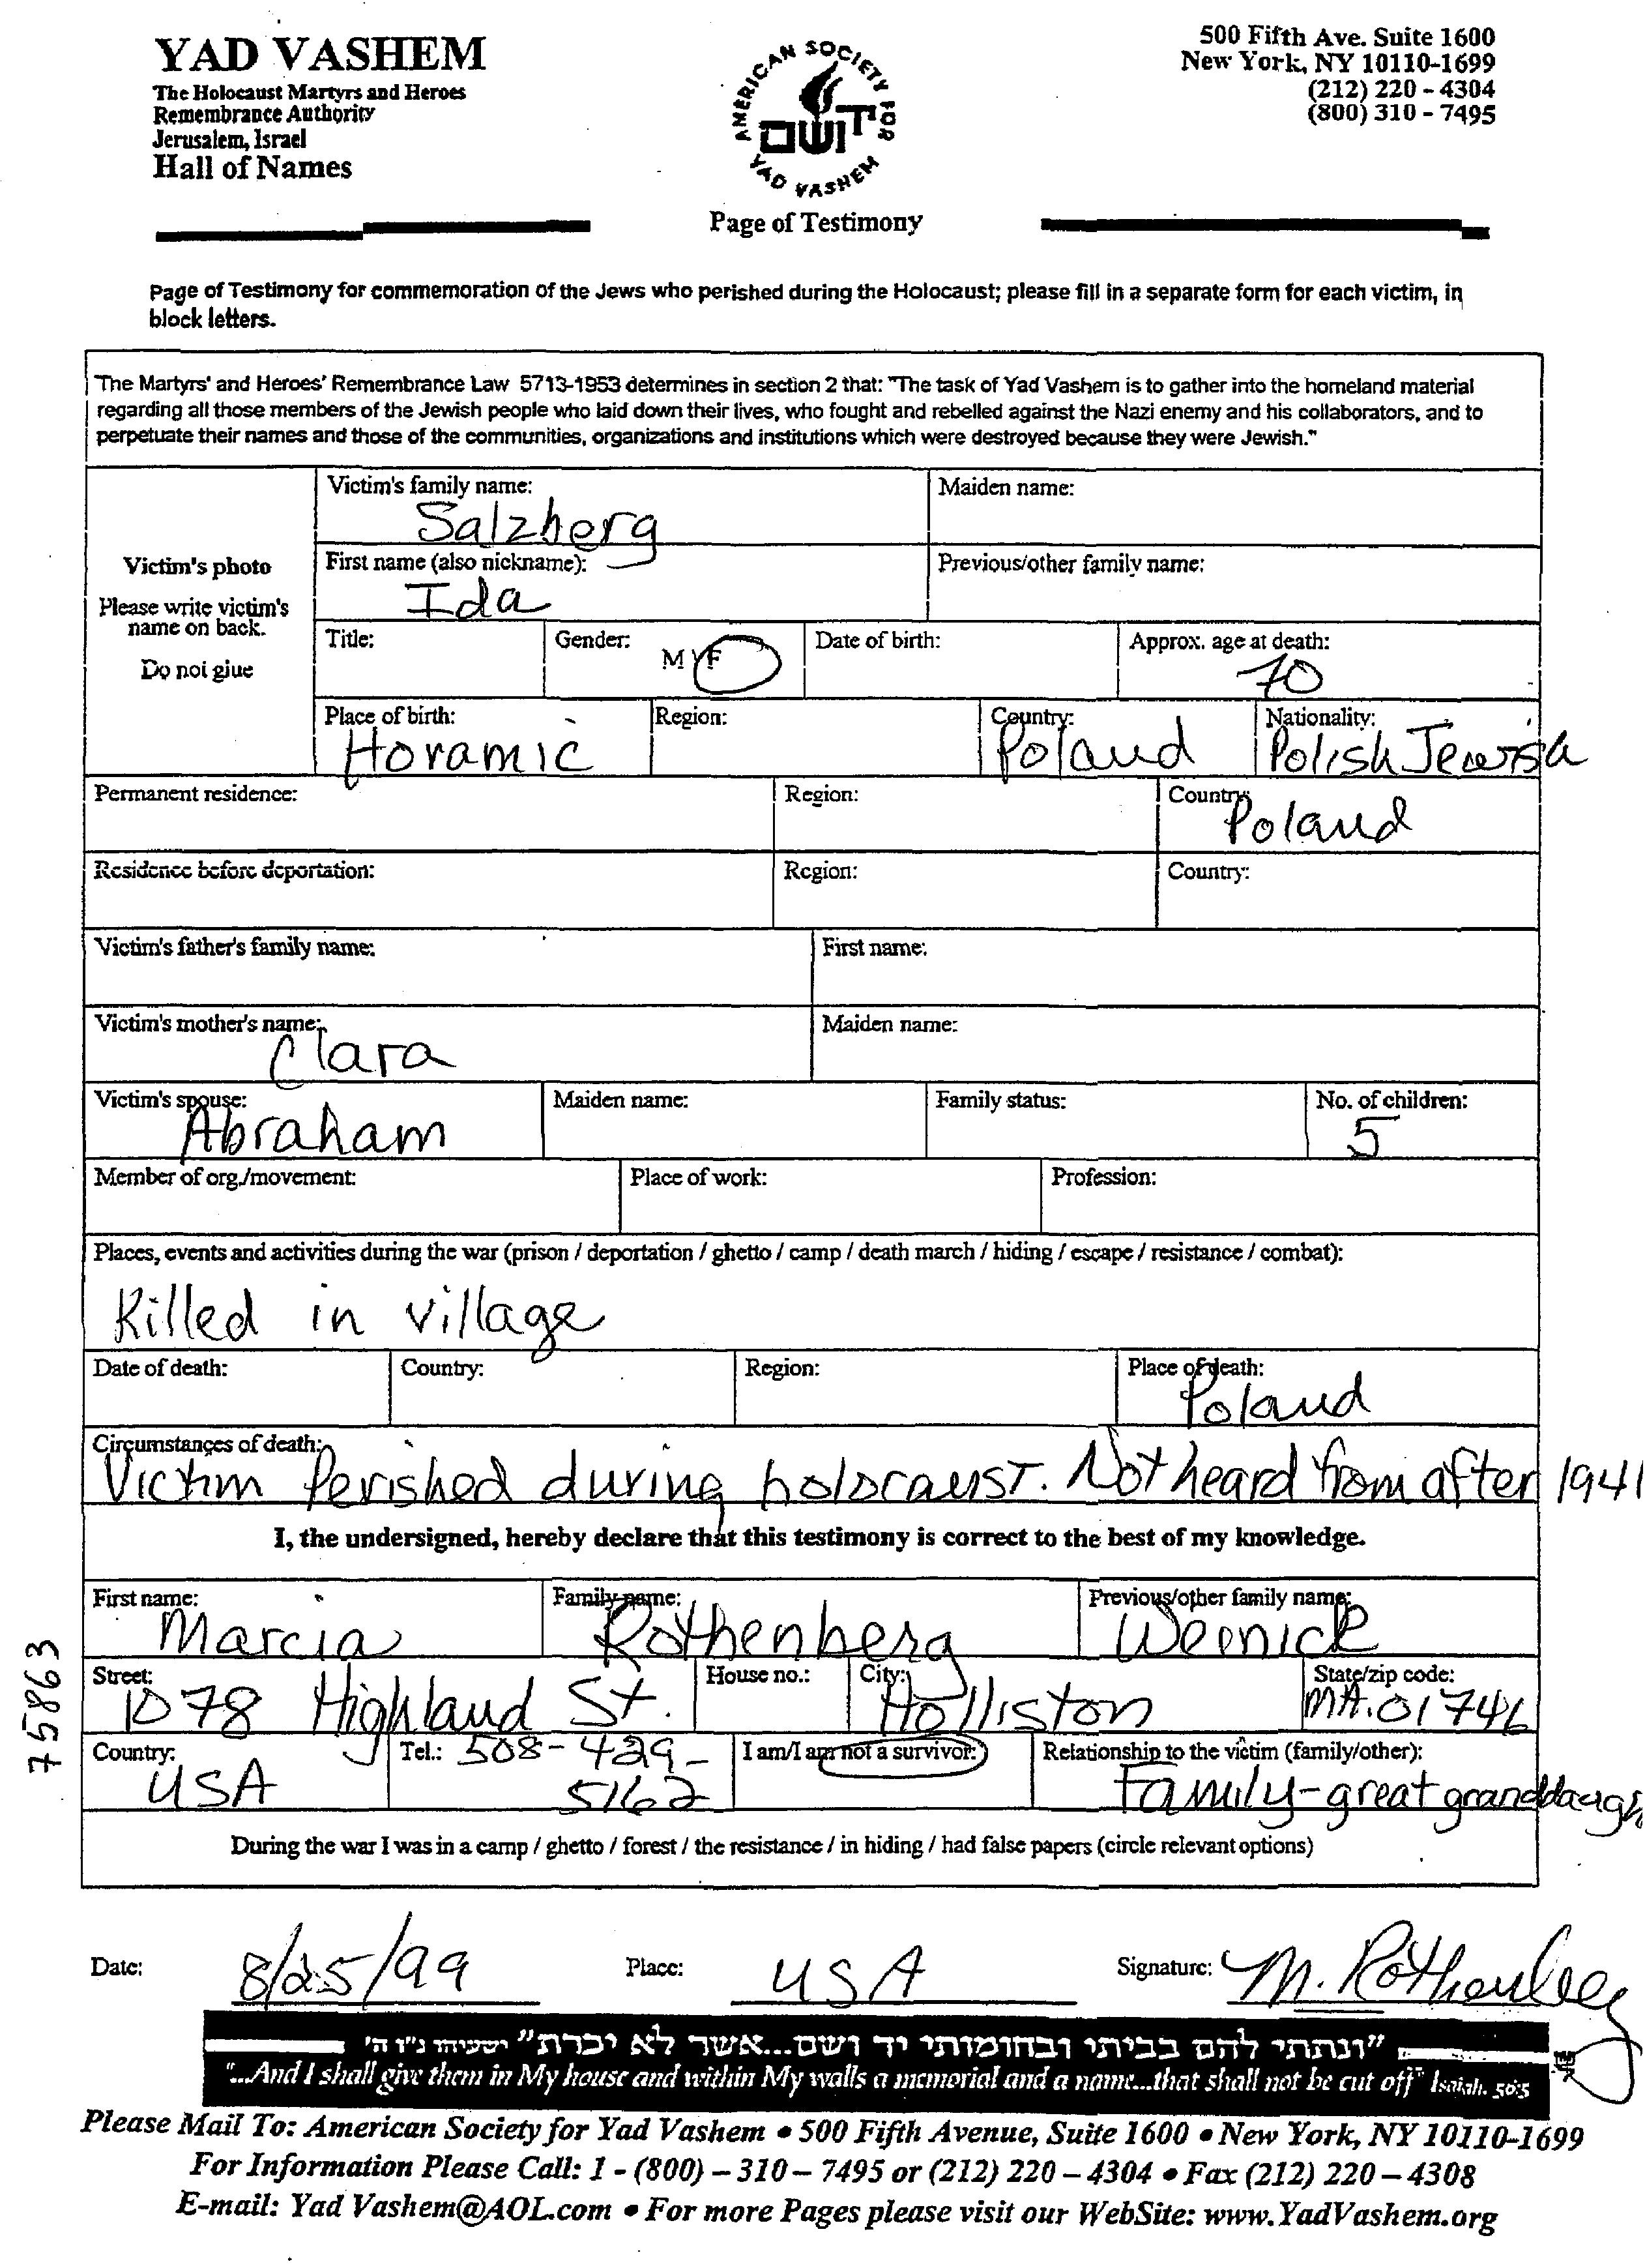 YAD VASHEM
The Holocaust Martyrs and Heroes
Remembrance Authority
Jerusalem, Israel
Hall of Names
AMERICAN SOCIETY FOR
יד ושם
YAD VASHEM
Page of Testimony
500 Fifth Ave. Suite 1600
New York, NY 10110-1699
(212) 220 - 4304
(800) 310 - 7495
Page of Testimony for commemoration of the Jews who perished during the Holocaust; please fill in a separate form for each victim, in
block letters.
The Martyrs' and Heroes' Remembrance Law 5713-1953 determines in section 2 that: "The task of Yad Vashem is to gather into the homeland material
regarding all those members of the Jewish people who laid down their lives, who fought and rebelled against the Nazi enemy and his collaborators, and to
perpetuate their names and those of the communities, organizations and institutions which were destroyed because they were Jewish."
Victim's photo
Please write victim's
name on back.
Do not glue
Victim's family name: Maiden name:
Salzberg
First name (also nickname): Previous/other family name:
Ida
Title: Gender: M / F Date of birth: Approx. age at death:
70
Place of birth: Region: Country: Nationality:
Horamic Poland Polish Jewish
Permanent residence: Region: Country:
Poland
Residence before deportation: Region: Country:
Victim's father's family name: First name:
Victim's mother's name: Maiden name:
Clara
Victim's spouse: Maiden name: Family status: No. of children:
Abraham 5
Member of org./movement: Place of work: Profession:
Places, events and activities during the war (prison / deportation / ghetto / camp / death march / hiding / escape / resistance / combat):
Killed in village
Date of death: Country: Region: Place of death:
Poland
Circumstances of death:
Victim Perished during holocaust. Not heard from after 1941
I, the undersigned, hereby declare that this testimony is correct to the best of my knowledge.
First name: Family name: Previous/other family name:
Marcia Rothenberg Wernick
Street: House no.: City: State/zip code:
1078 Highland St. Holliston MA. 01746
Country: Tel.: 508-429- I am/I am not a survivor: Relationship to the victim (family/other):
USA 5162 Family-great granddaugh
During the war I was in a camp / ghetto / forest / the resistance / in hiding / had false papers (circle relevant options)
75863
Date: 8/25/99 Place: USA Signature: M. Rothenberg
"ונתתי להם בביתי ובחומותי יד ושם...אשר לא יכרת" ישעיהו נ"ו ה'
"...And I shall give them in My house and within My walls a memorial and a name...that shall not be cut off" Isaiah. 56:5
Please Mail To: American Society for Yad Vashem • 500 Fifth Avenue, Suite 1600 • New York, NY 10110-1699
For Information Please Call: 1 - (800) – 310 – 7495 or (212) 220 – 4304 • Fax (212) 220 – 4308
E-mail: Yad Vashem@AOL.com • For more Pages please visit our WebSite: www.YadVashem.org